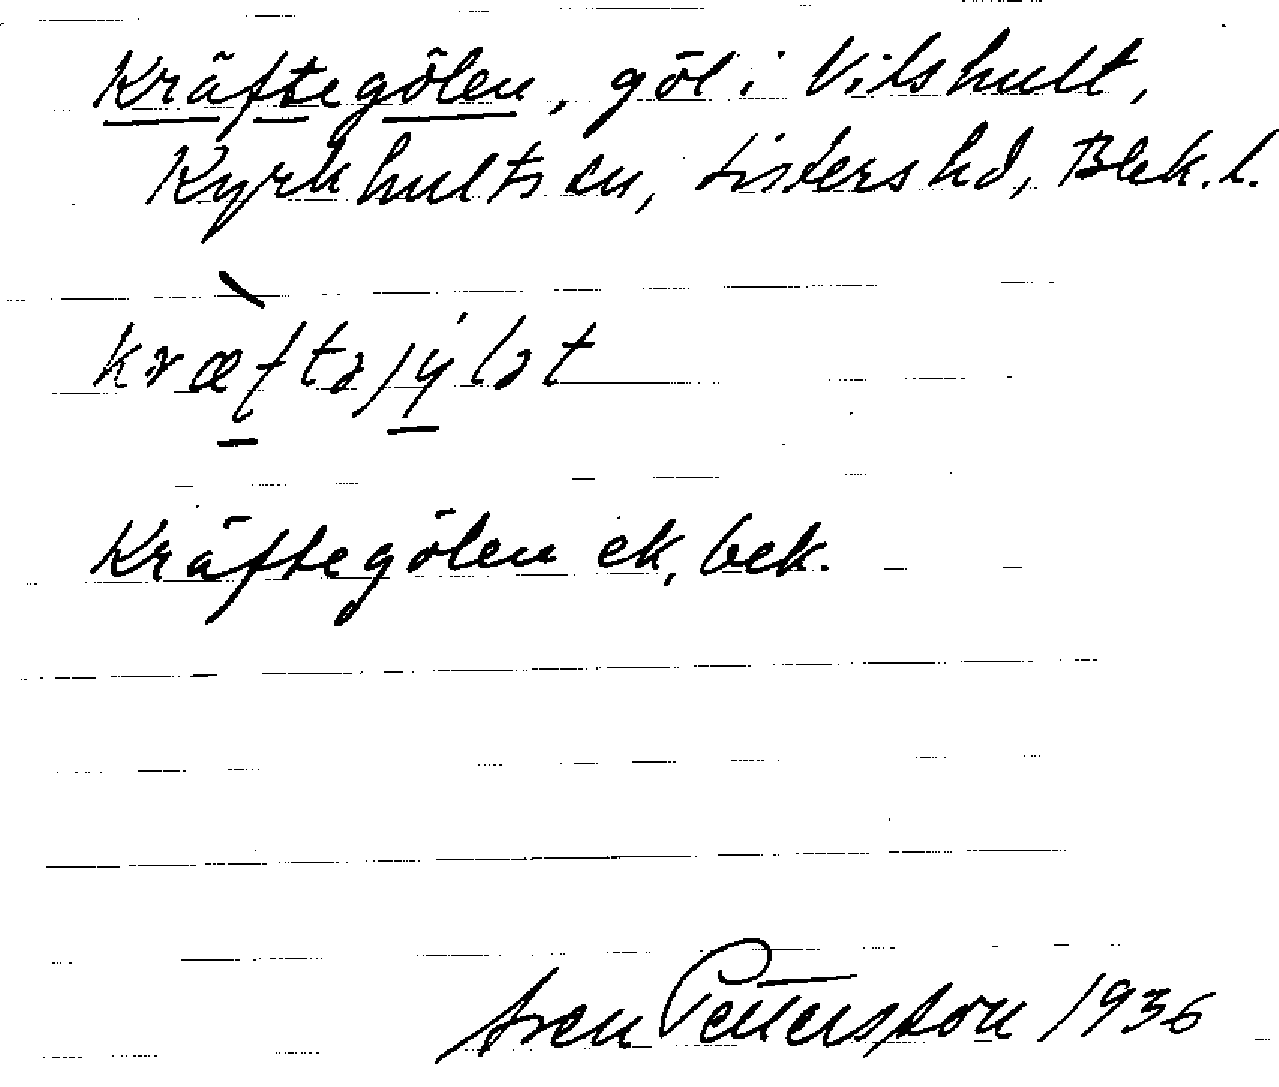 Kräftegölen, göl i Vilshult,
Kyrkhults sn, Listers hd, Blek. l.
kræftəjýlət
Kräftegölen ek. bek.
Sven Pettersson 1936